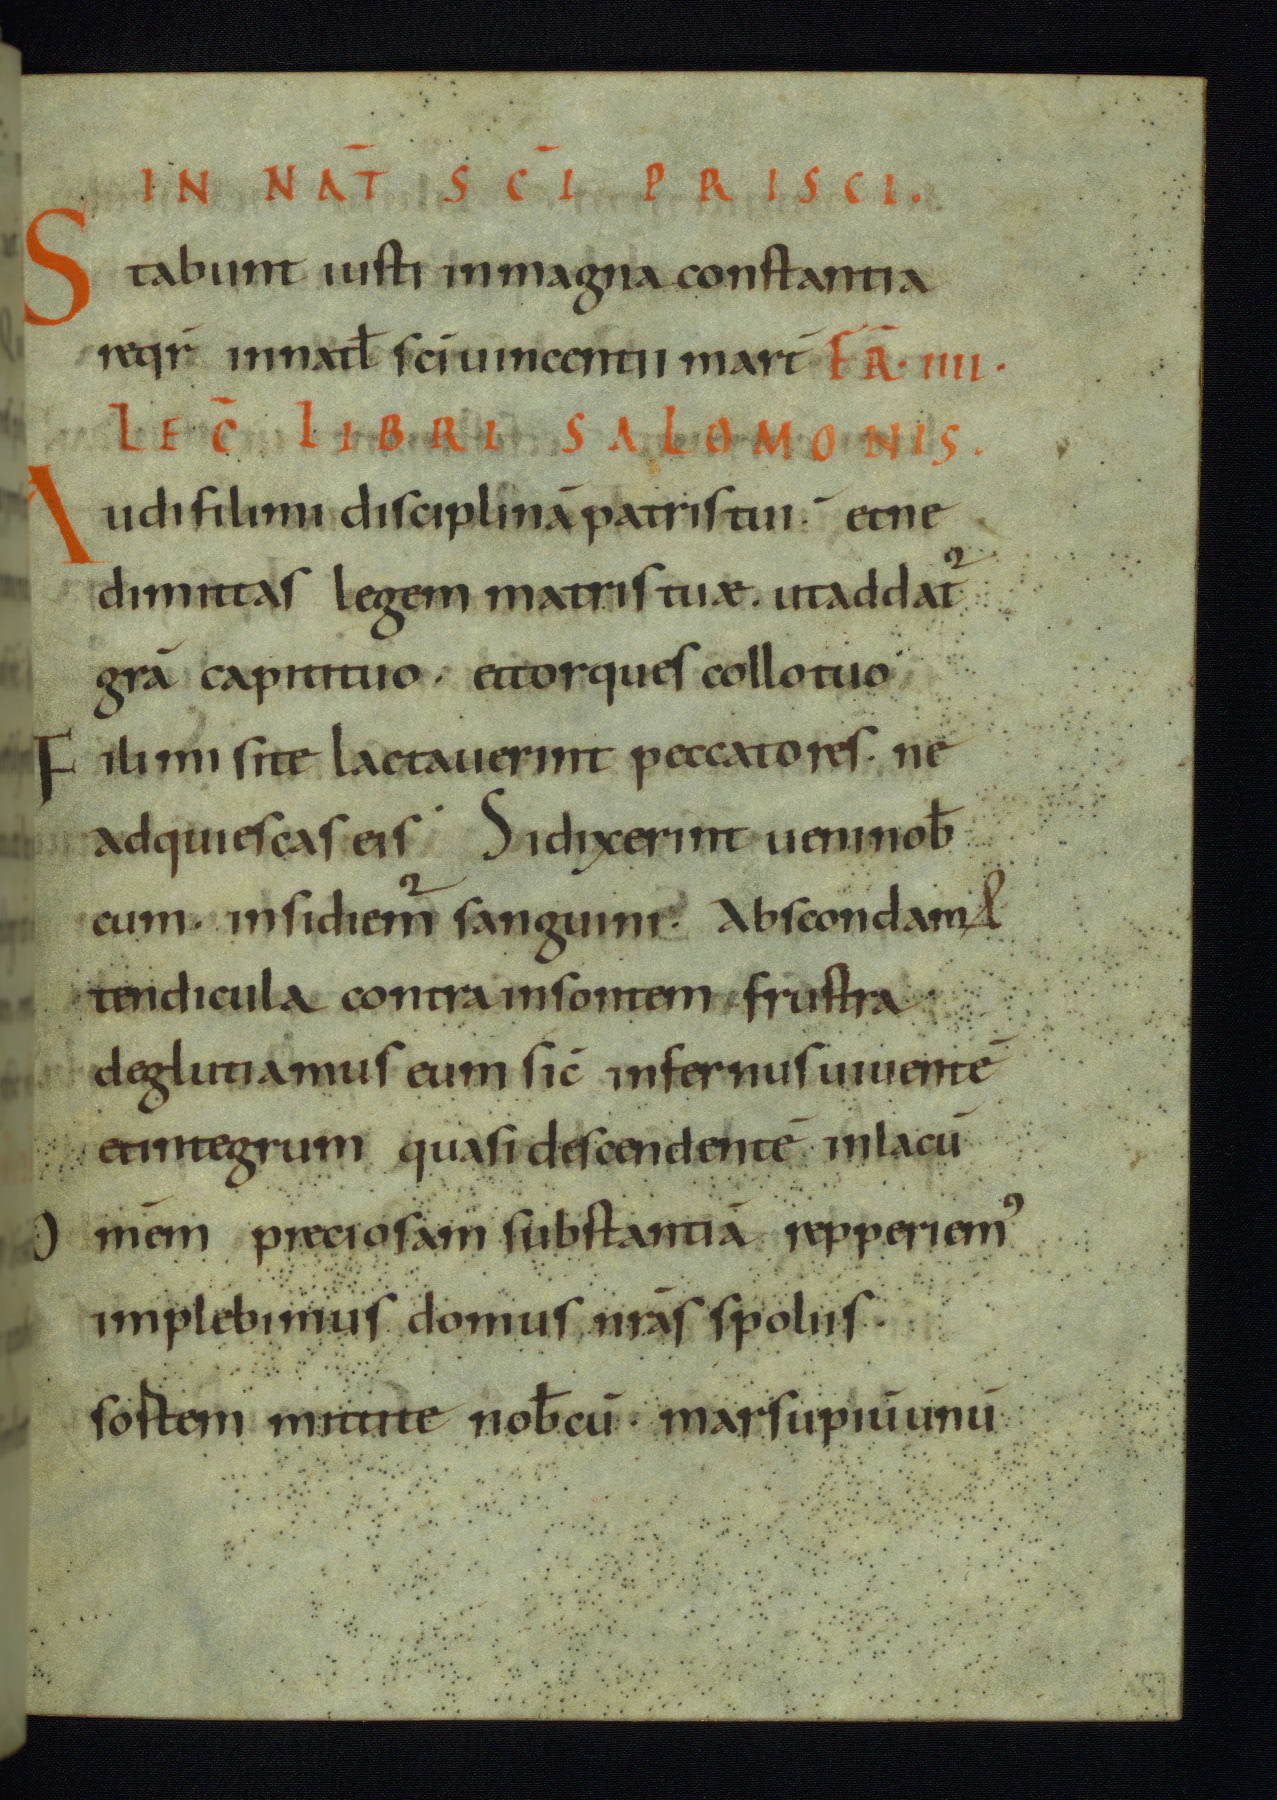 IN NAT̄ SC̄I PRISCI.
Stabunt iusti inmagna constantia
reqr̄ innatł sc̄i uincentii mart̄ FR̄. IIII.
LEC̄ LIBRI SALOMONIS.
Audi fili mi disciplinā patris tui. et ne
dimittas legem matris tuæ. ut addat᷑
grā capiti tuo. et torques collo tuo
Fili mi si te lactauerint peccatores. ne
adquiescas eis. Si dixerint ueni nob̄
cum. insidiem᷑ sanguini. Abscondam&
tendicula contra insontem frustra
deglutiamus eum sic̄ infernus uiuentē
et integrum quasi descendentē inlacū
Omēm preciosam substantiā repperiemꝰ
implebimus domus nrās spoliis.
sostem mittite nob̄cū. marsupiū unū